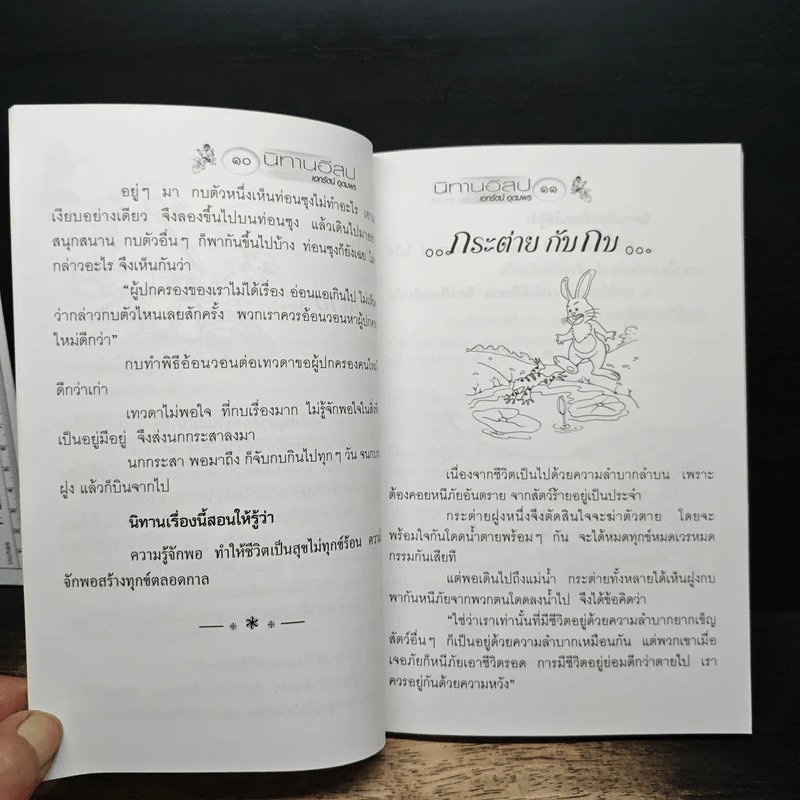 ๑๐ นิทานอีสป
เอกรัตน์ อุดมพร
อยู่ๆ มา กบตัวหนึ่งเห็นท่อนซุงไม่ทำอะไร
เงียบอย่างเดียว จึงลองขึ้นไปบนท่อนซุง แล้วเดินไปมาอย่าง
สนุกสนาน กบตัวอื่นๆ ก็พากันขึ้นไปบ้าง ท่อนซุงก็ยังเฉย ไม่
กล่าวอะไร จึงเห็นกันว่า
“ผู้ปกครองของเราไม่ได้เรื่อง อ่อนแอเกินไป ไม่เห็น
ว่ากล่าวกบตัวไหนเลยสักครั้ง พวกเราควรอ้อนวอนหาผู้ปกครอง
ใหม่ดีกว่า”
กบทำพิธีอ้อนวอนต่อเทวดาขอผู้ปกครองคนใหม่
ดีกว่าเก่า
เทวดาไม่พอใจ ที่กบเรื่องมาก ไม่รู้จักพอใจในสิ่งที่
เป็นอยู่มีอยู่ จึงส่งนกกระสาลงมา
นกกระสา พอมาถึง ก็จับกบกินไปทุกๆ วัน จนกบหมด
ฝูง แล้วก็บินจากไป
นิทานเรื่องนี้สอนให้รู้ว่า
ความรู้จักพอ ทำให้ชีวิตเป็นสุขไม่ทุกข์ร้อน
จักพอสร้างทุกข์ตลอดกาล
นิทานอีสป ๑๑
เอกรัตน์ อุดมพร
กระต่าย กับกบ
เนื่องจากชีวิตเป็นไปด้วยความลำบากลำบน เพราะ
ต้องคอยหนีภัยอันตราย จากสัตว์ร้ายอยู่เป็นประจำ
กระต่ายฝูงหนึ่งจึงตัดสินใจจะฆ่าตัวตาย โดยจะ
พร้อมใจกันโดดน้ำตายพร้อมๆ กัน จะได้หมดทุกข์หมดเวรหมด
กรรมกันเสียที
แต่พอเดินไปถึงแม่น้ำ กระต่ายทั้งหลายได้เห็นฝูงกบ
พากันหนีภัยจากพวกตนโดดลงน้ำไป จึงได้ข้อคิดว่า
“ใช่ว่าเราเท่านั้นที่มีชีวิตอยู่ด้วยความลำบากยากเข็ญ
สัตว์อื่นๆ ก็เป็นอยู่ด้วยความลำบากเหมือนกัน แต่พวกเขาเมื่อ
เจอภัยก็หนีภัยเอาชีวิตรอด การมีชีวิตอยู่ย่อมดีกว่าตายไป เรา
ควรอยู่กันด้วยความหวัง”